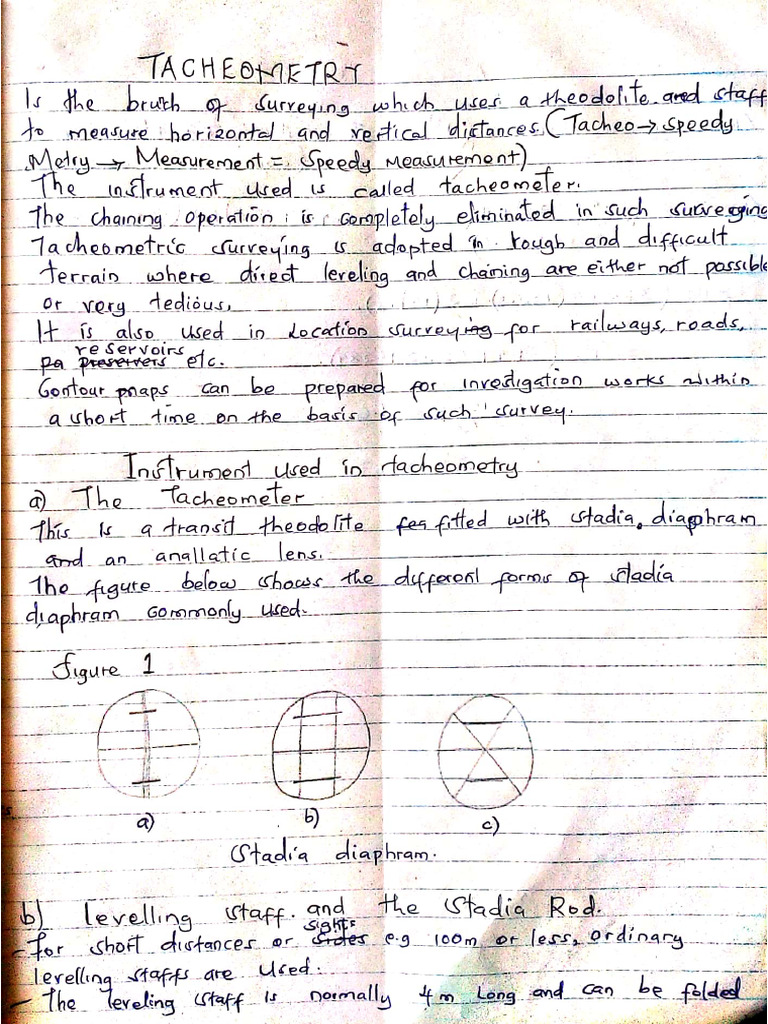 TACHEOMETRY
Is the bruth of surveying which uses a theodolite and staff
to measure horizontal and vertical distances. (Tacheo → speedy
Metry → Measurement = Speedy Measurement)
The instrument used is called tacheometer.
The chaining operation is completely eliminated in such surveying
Tacheometric surveying is adopted in rough and difficult
terrain where direct leveling and chaining are either not possible
or very tedious.
It is also used in Location surveying for railways, roads,
reservoirs
etc.
Contour maps can be prepared for investigation works within
a short time on the basis of such survey.
Instrument used in tacheometry
a) The Tacheometer
This is a transit theodolite fitted with stadia diaphram
and an anallatic lens.
The figure below shows the different forms of stadia
diaphram commonly used.
figure 1
a) b) c)
Stadia diaphram.
b) Levelling staff and the Stadia Rod.
sights
- For short distances or e.g 100m or less, ordinary
levelling staffs are used.
- The leveling staff is normally 4m long and can be folded